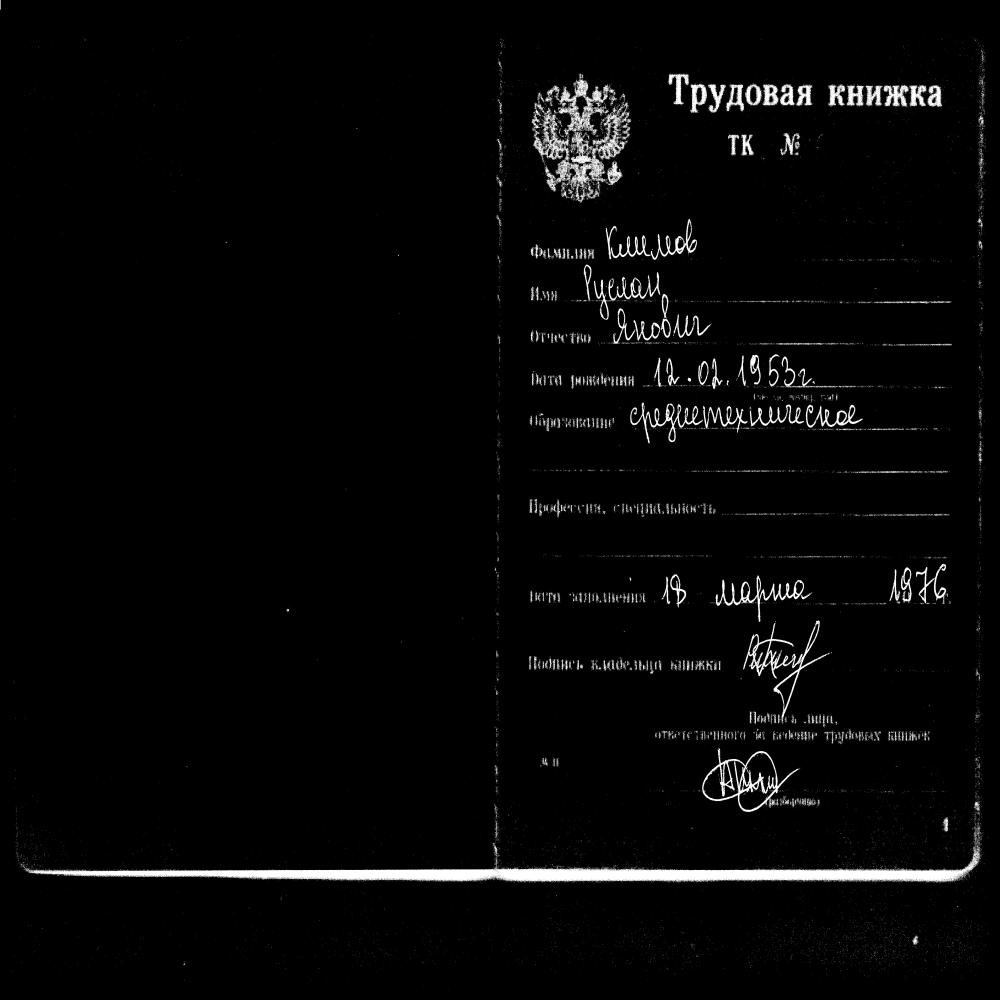 Трудовая книжка
ТК №
Фамилия Климов
Имя Руслан
Отчество Янович
Дата рождения 12.02.1953г.
(число, месяц, год)
Образование среднетехническое
Профессия, специальность
Дата заполнения 18 марта 1976
Подпись владельца книжки
Подпись лица,
ответственного за ведение трудовых книжек
М П
(разборчиво)
1